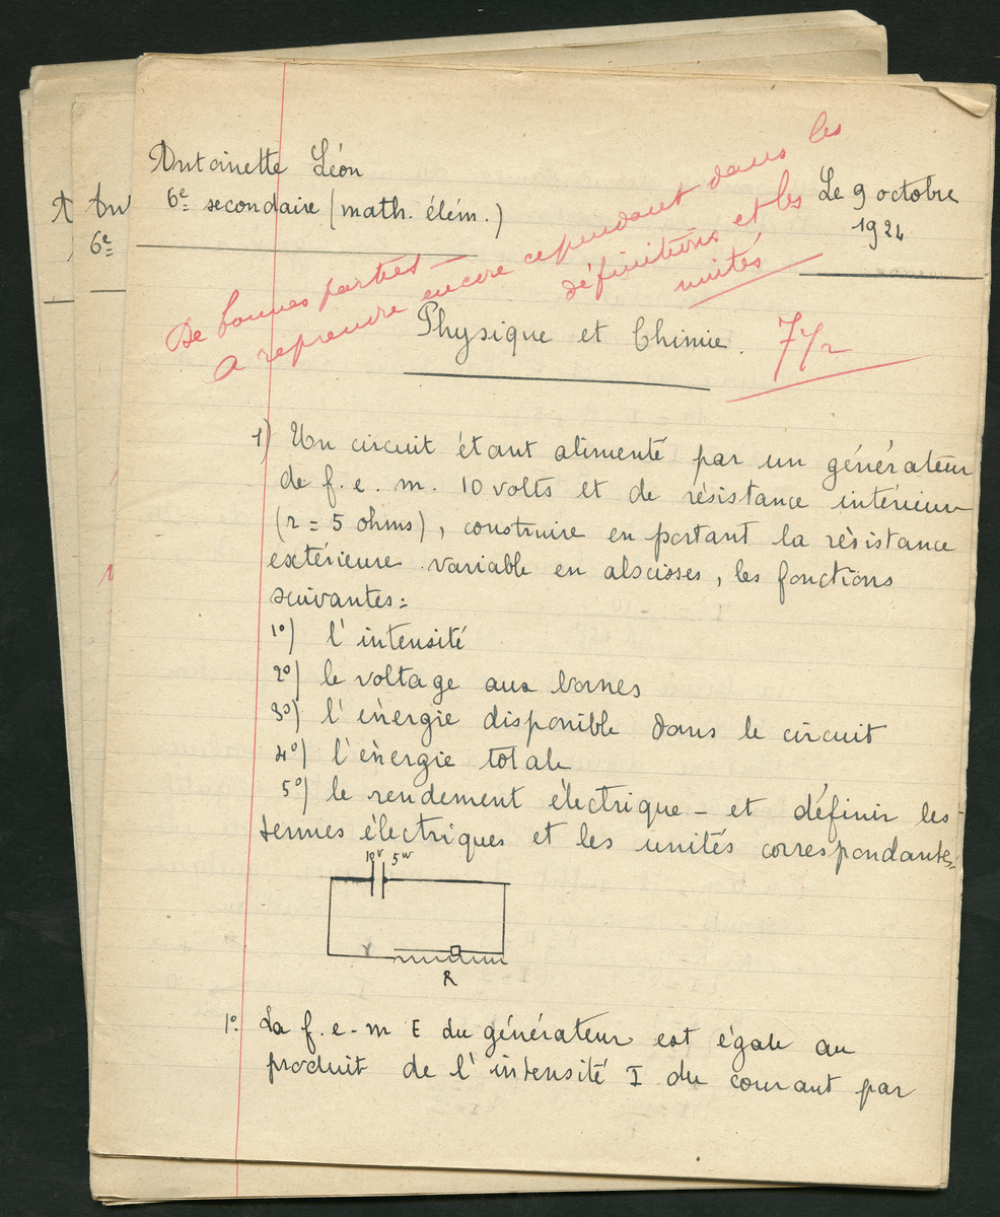 Antoinette Léon
6e secondaire (math. élém.)
Le 9 octobre
1924
De bonnes parties
A reprendre encore cependant dans les
définitions et les
unités
Physique et Chimie.
7 1/2
1) Un circuit étant alimenté par un générateur
de f. e. m. 10 volts et de résistance intérieure
(r = 5 ohms), construire en portant la résistance
extérieure variable en abscisses, les fonctions
suivantes:
1°) l'intensité
2°) le voltage aux bornes
3°) l'énergie disponible dans le circuit
4°) l'énergie totale
5°) le rendement électrique – et définir les
termes électriques et les unités correspondantes.
10v 5w
r
R
1°. La f. e. m E du générateur est égale au
produit de l'intensité I du courant par
A
An
6e